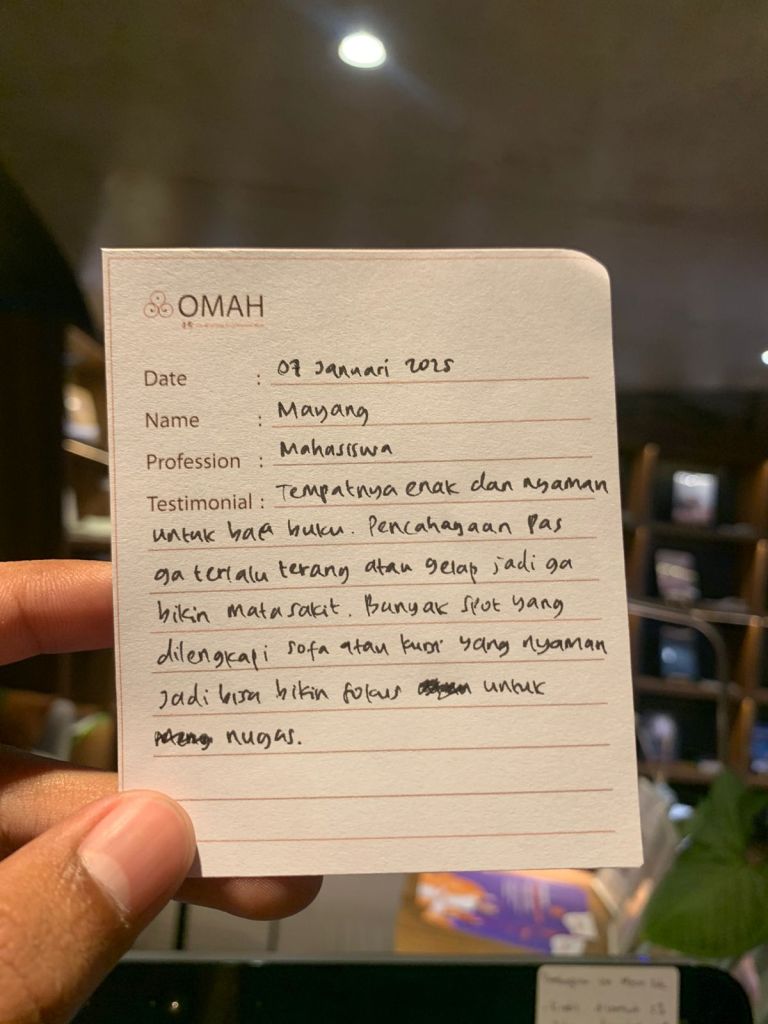 OMAH
Date : 07 Januari 2025
Name : Mayang
Profession : Mahasiswa
Testimonial : Tempatnya enak dan nyaman
untuk baca buku. Pencahayaan pas
ga terlalu terang atau gelap jadi ga
bikin mata sakit. Banyak spot yang
dilengkapi sofa atau kursi yang nyaman
jadi bisa bikin fokus untuk
nugas.